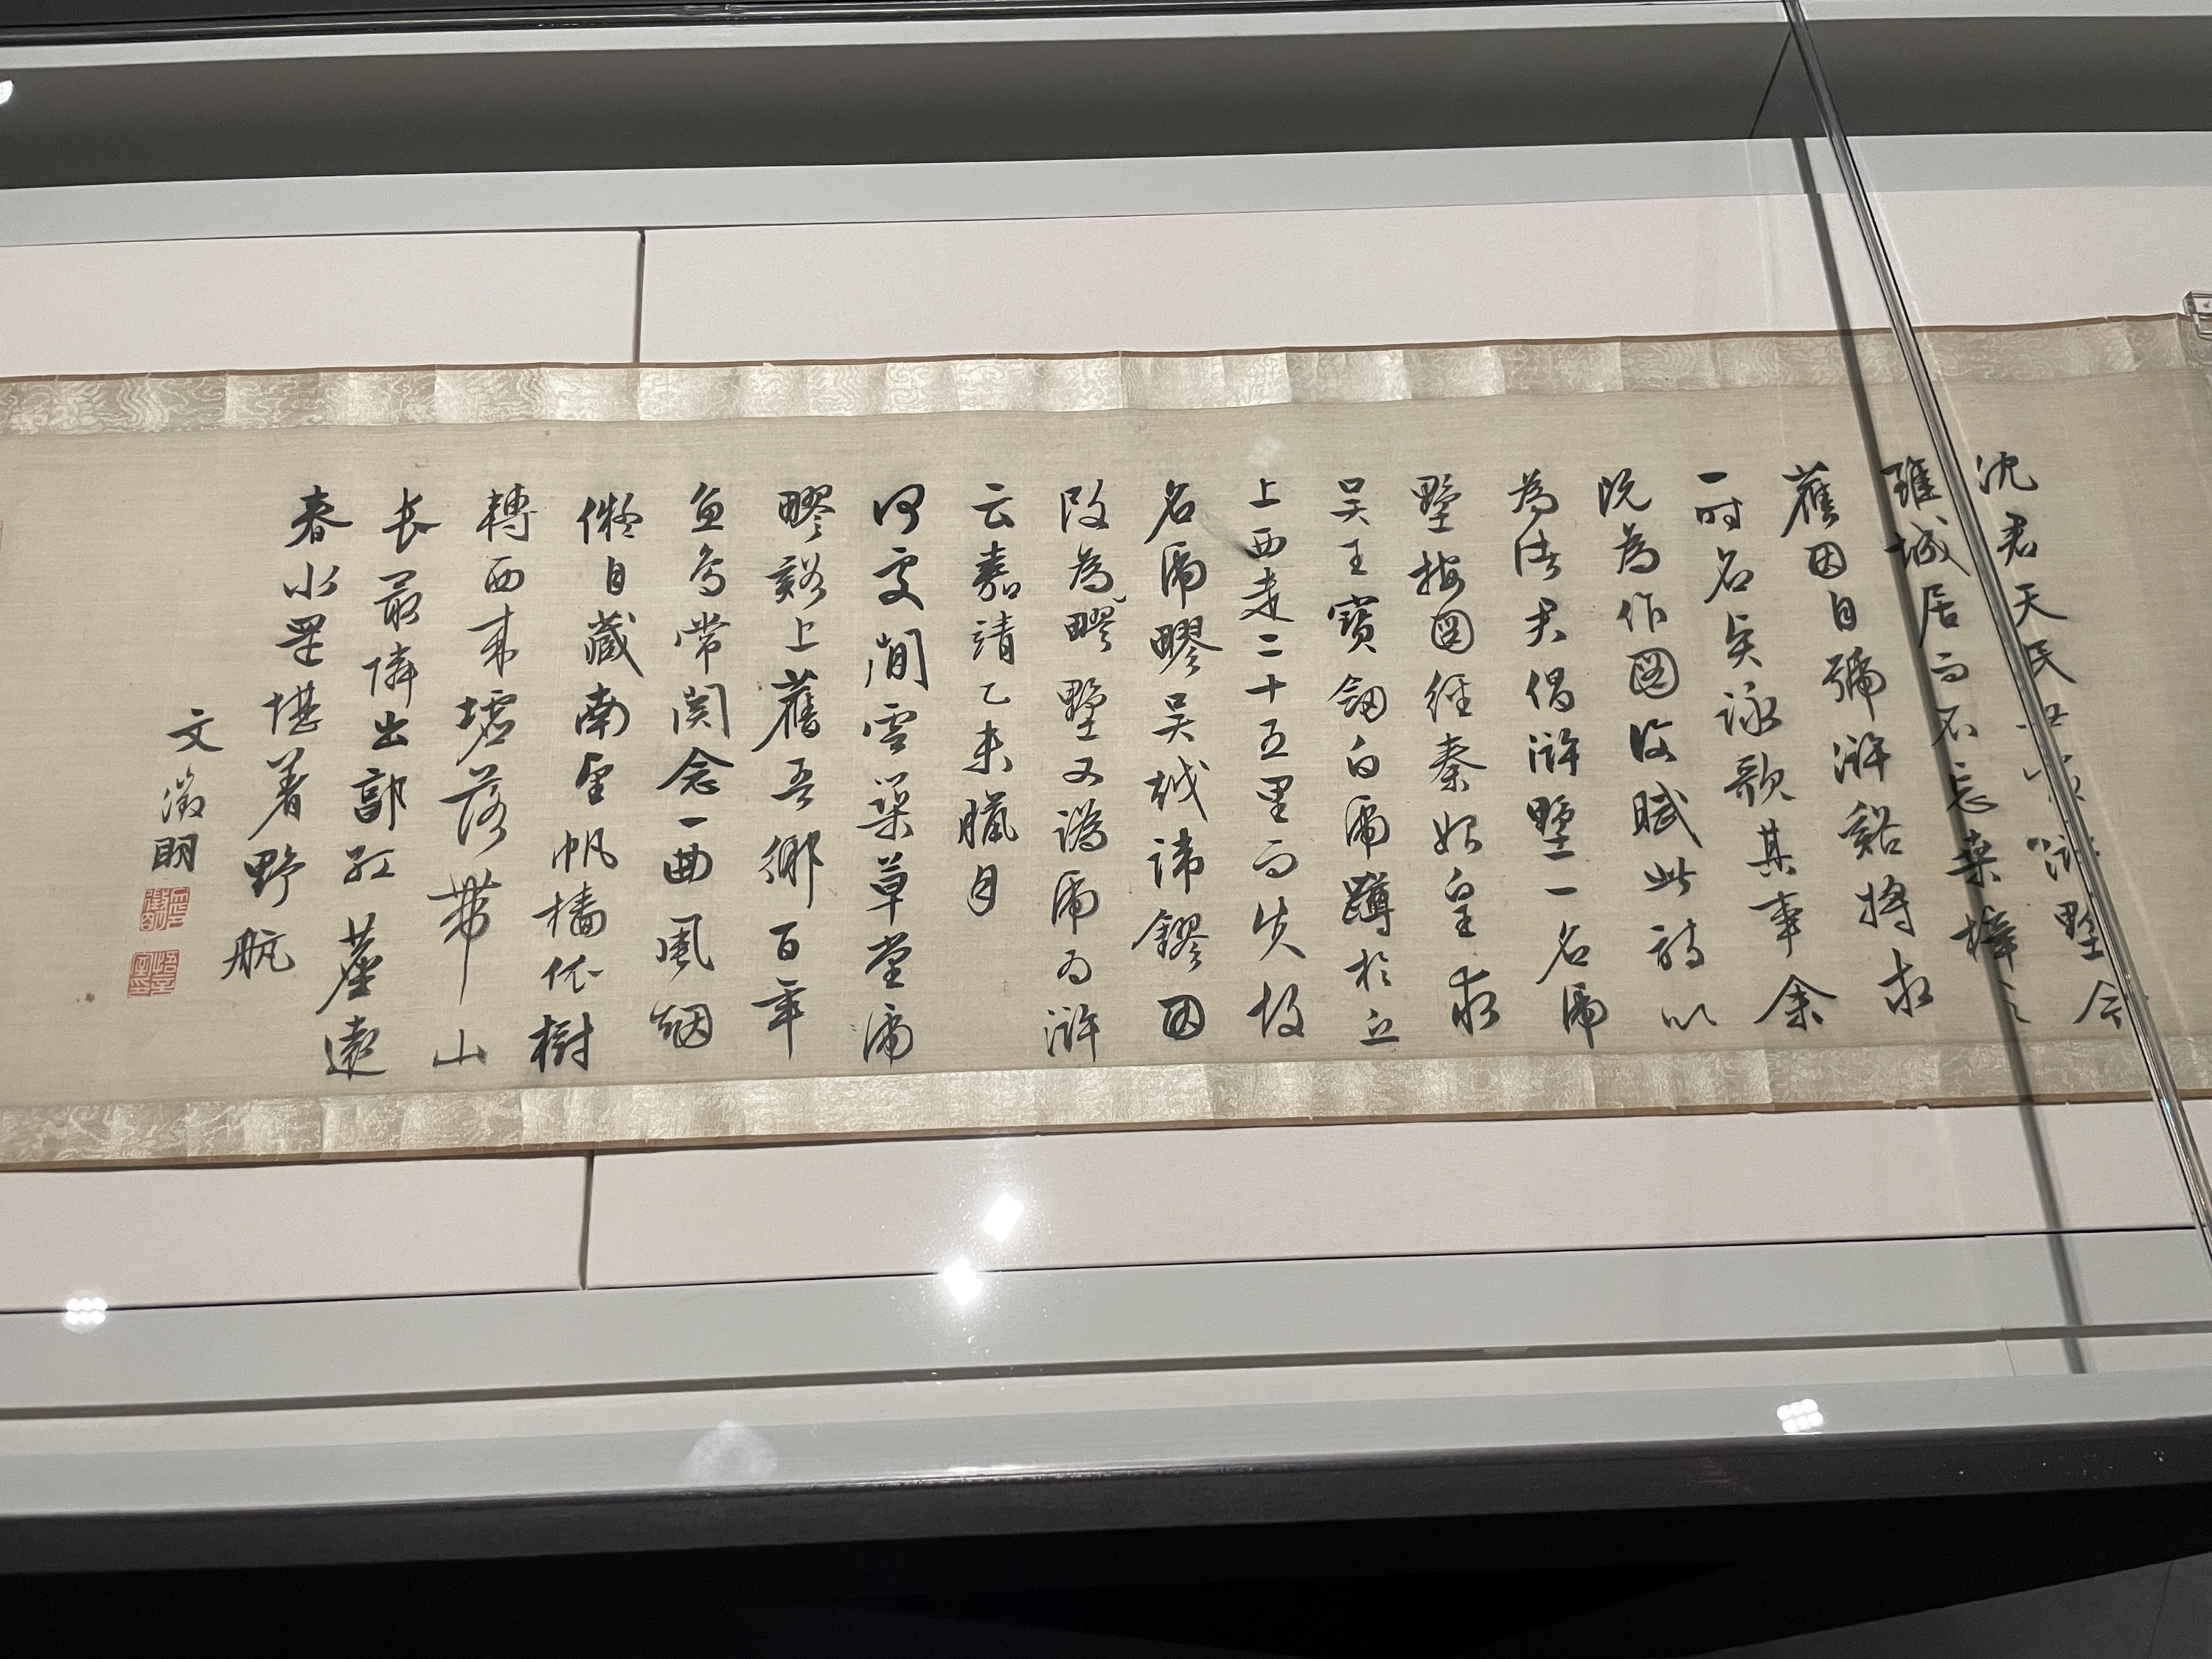 沈君天民世家滸墅今
雖城居而不忘桑梓之
舊因自號滸谿將求
一時名勝詠歌其事余
既為作圖復賦此詩以
為諸君倡滸墅一名虎
墅按圖經秦始皇求
吳王寶劍白虎蹲於丘
上西走二十五里而失故
名虎疁吳越諱鏐因
改為疁墅又譌虎為滸
云嘉靖乙未臘月
何處閒雲築草堂虎
疁谿上舊吾鄉百年
魚鳥常關念一曲風烟
擬自藏南望帆檣依樹
轉西來墟落帶山
長最憐出郭紅塵遠
春水還堪着野航
文徵明